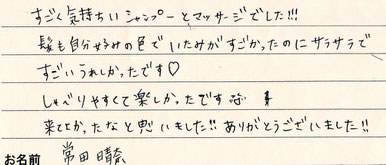 すごく気持ちいシャンプーとマッサージでした!!!
髪も自分好みの色でいたみがすごかったのにサラサラで
すごいうれしかったです♡
しゃべりやすくて楽しかったです
来てよかったなと思いました!! ありがとうございました!!
お名前 常田晴奈